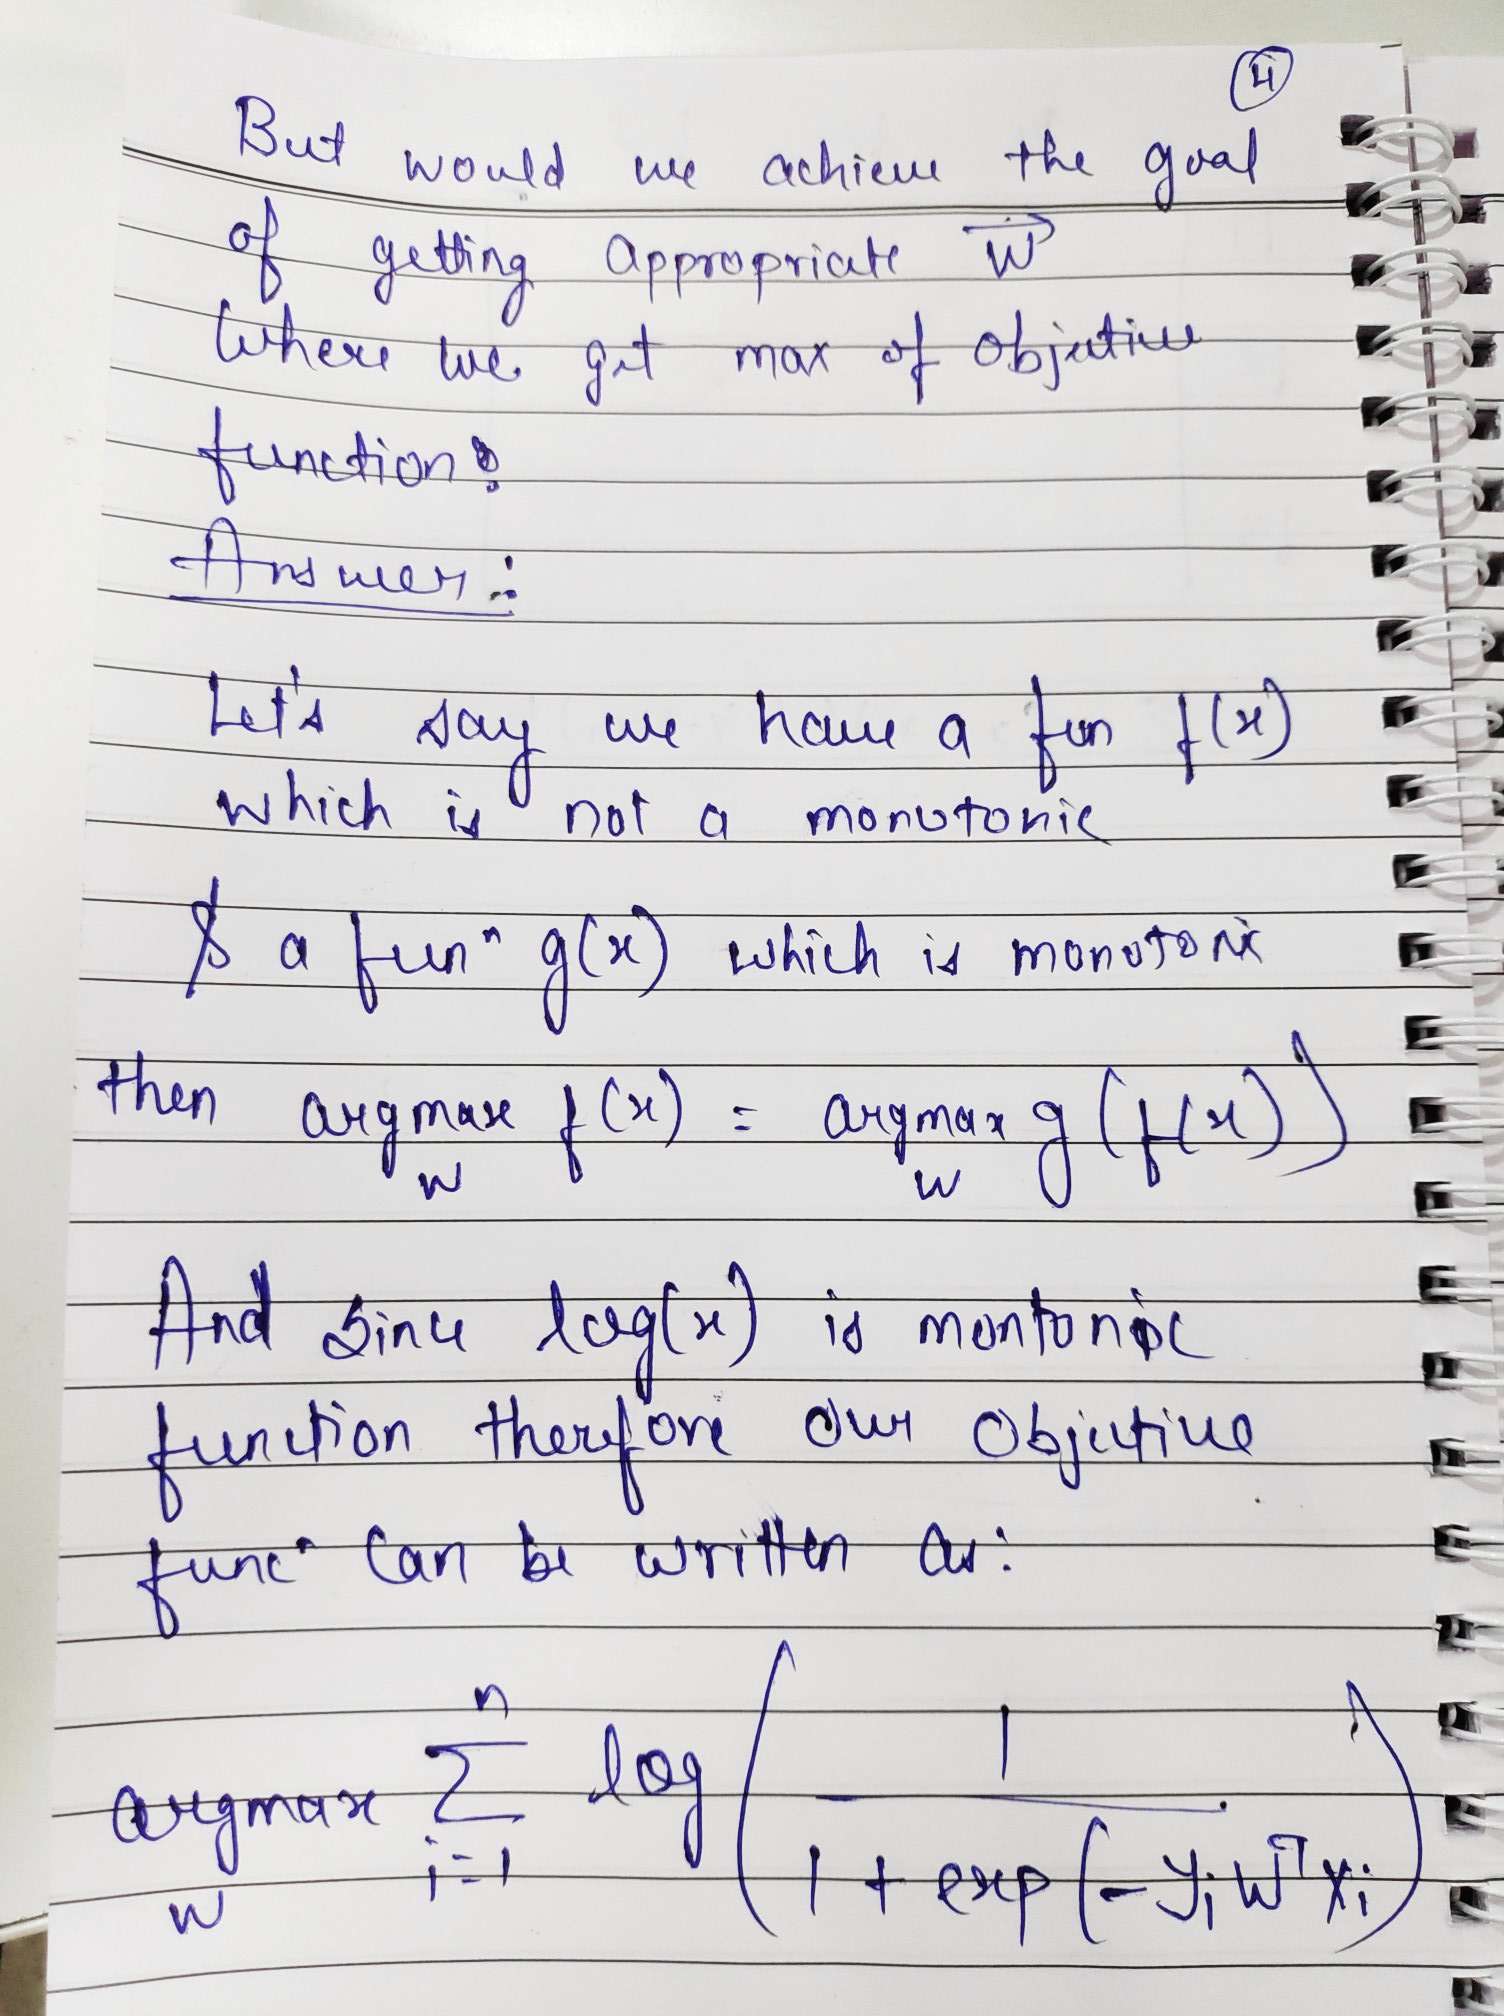 4
But would we achieve the goal
of getting appropriate w⃗
Where we get max of objective
function?
Answer:
Let's say we have a fun f(x)
which is not a monotonic
& a funⁿ g(x) which is monotonic
then argmax f(x) = argmax g(f(x))
w w
And Since log(x) is montonic
function therefore our Objective
funcⁿ Can be written as:
argmax_w Σ_{i=1}^{n} log(1 / (1 + exp(-yᵢ wᵀ xᵢ)